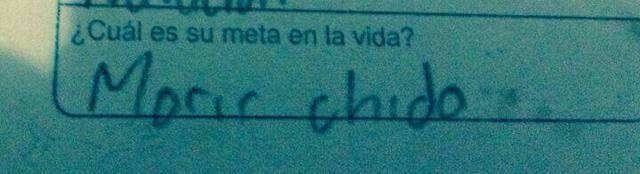 ¿Cuál es su meta en la vida?
Morir chido